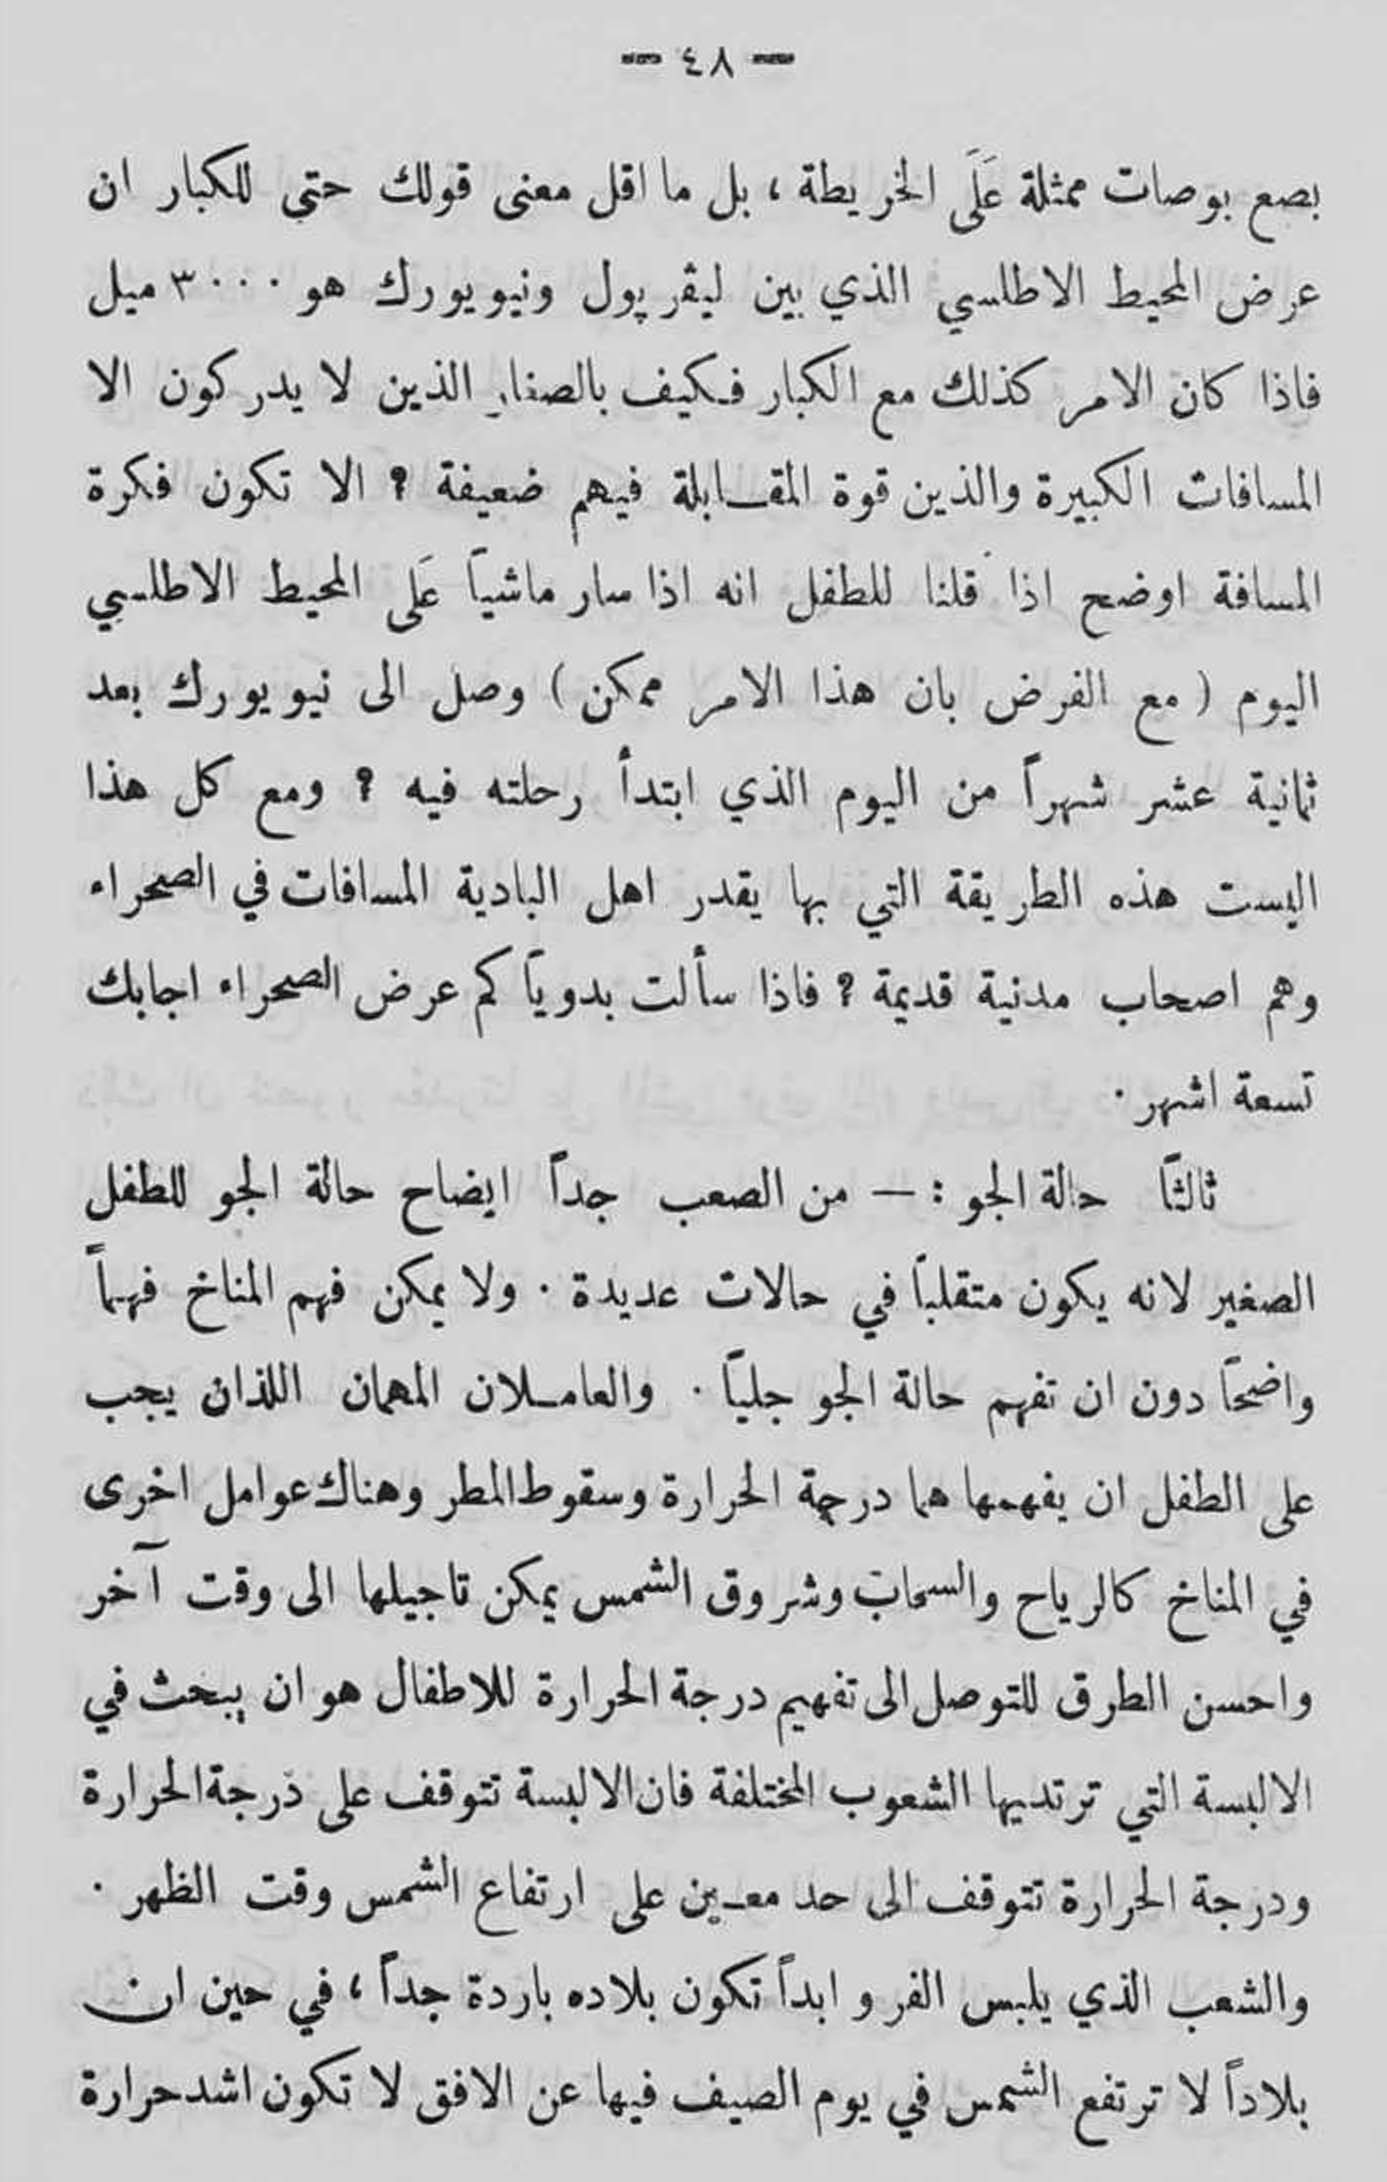 — ٤٨ —
بضع بوصات ممثلة عَلَى الخريطة ، بل ما اقل معنى قولك حتى للكبار ان
عرض المحيط الاطلسي الذي بين ليڤرپول ونيويورك هو ٣٠٠٠ ميل
فاذا كان الامر كذلك مع الكبار فكيف بالصغار الذين لا يدركون الا
المسافات الكبيرة والذين قوة المقابلة فيهم ضعيفة ؟ الا تكون فكرة
المسافة اوضح اذا قلنا للطفل انه اذا سار ماشياً عَلى المحيط الاطلسي
اليوم ( مع الفرض بان هذا الامر ممكن ) وصل الى نيويورك بعد
ثمانية عشر شهراً من اليوم الذي ابتدأ رحلته فيه ؟ ومع كل هذا
اليست هذه الطريقة التي بها يقدر اهل البادية المسافات في الصحراء
وهم اصحاب مدنية قديمة ؟ فاذا سألت بدوياً كم عرض الصحراء اجابك
تسعة اشهر ·
ثالثاً حالة الجو : — من الصعب جداً ايضاح حالة الجو للطفل
الصغير لانه يكون متقلباً في حالات عديدة · ولا يمكن فهم المناخ فهماً
واضحاً دون ان تفهم حالة الجو جلياً · والعاملان المهمان اللذان يجب
على الطفل ان يفهمها هما درجة الحرارة وسقوط المطر وهناك عوامل اخرى
في المناخ كالرياح والسحاب وشروق الشمس يمكن تاجيلها الى وقت آخر
واحسن الطرق للتوصل الى تفهيم درجة الحرارة للاطفال هو ان يبحث في
الالبسة التي ترتديها الشعوب المختلفة فان الالبسة تتوقف على درجة الحرارة
ودرجة الحرارة تتوقف الى حد معين على ارتفاع الشمس وقت الظهر ·
والشعب الذي يلبس الفرو ابداً تكون بلاده باردة جداً ، في حين ان
بلاداً لا ترتفع الشمس في يوم الصيف فيها عن الافق لا تكون اشد حرارة